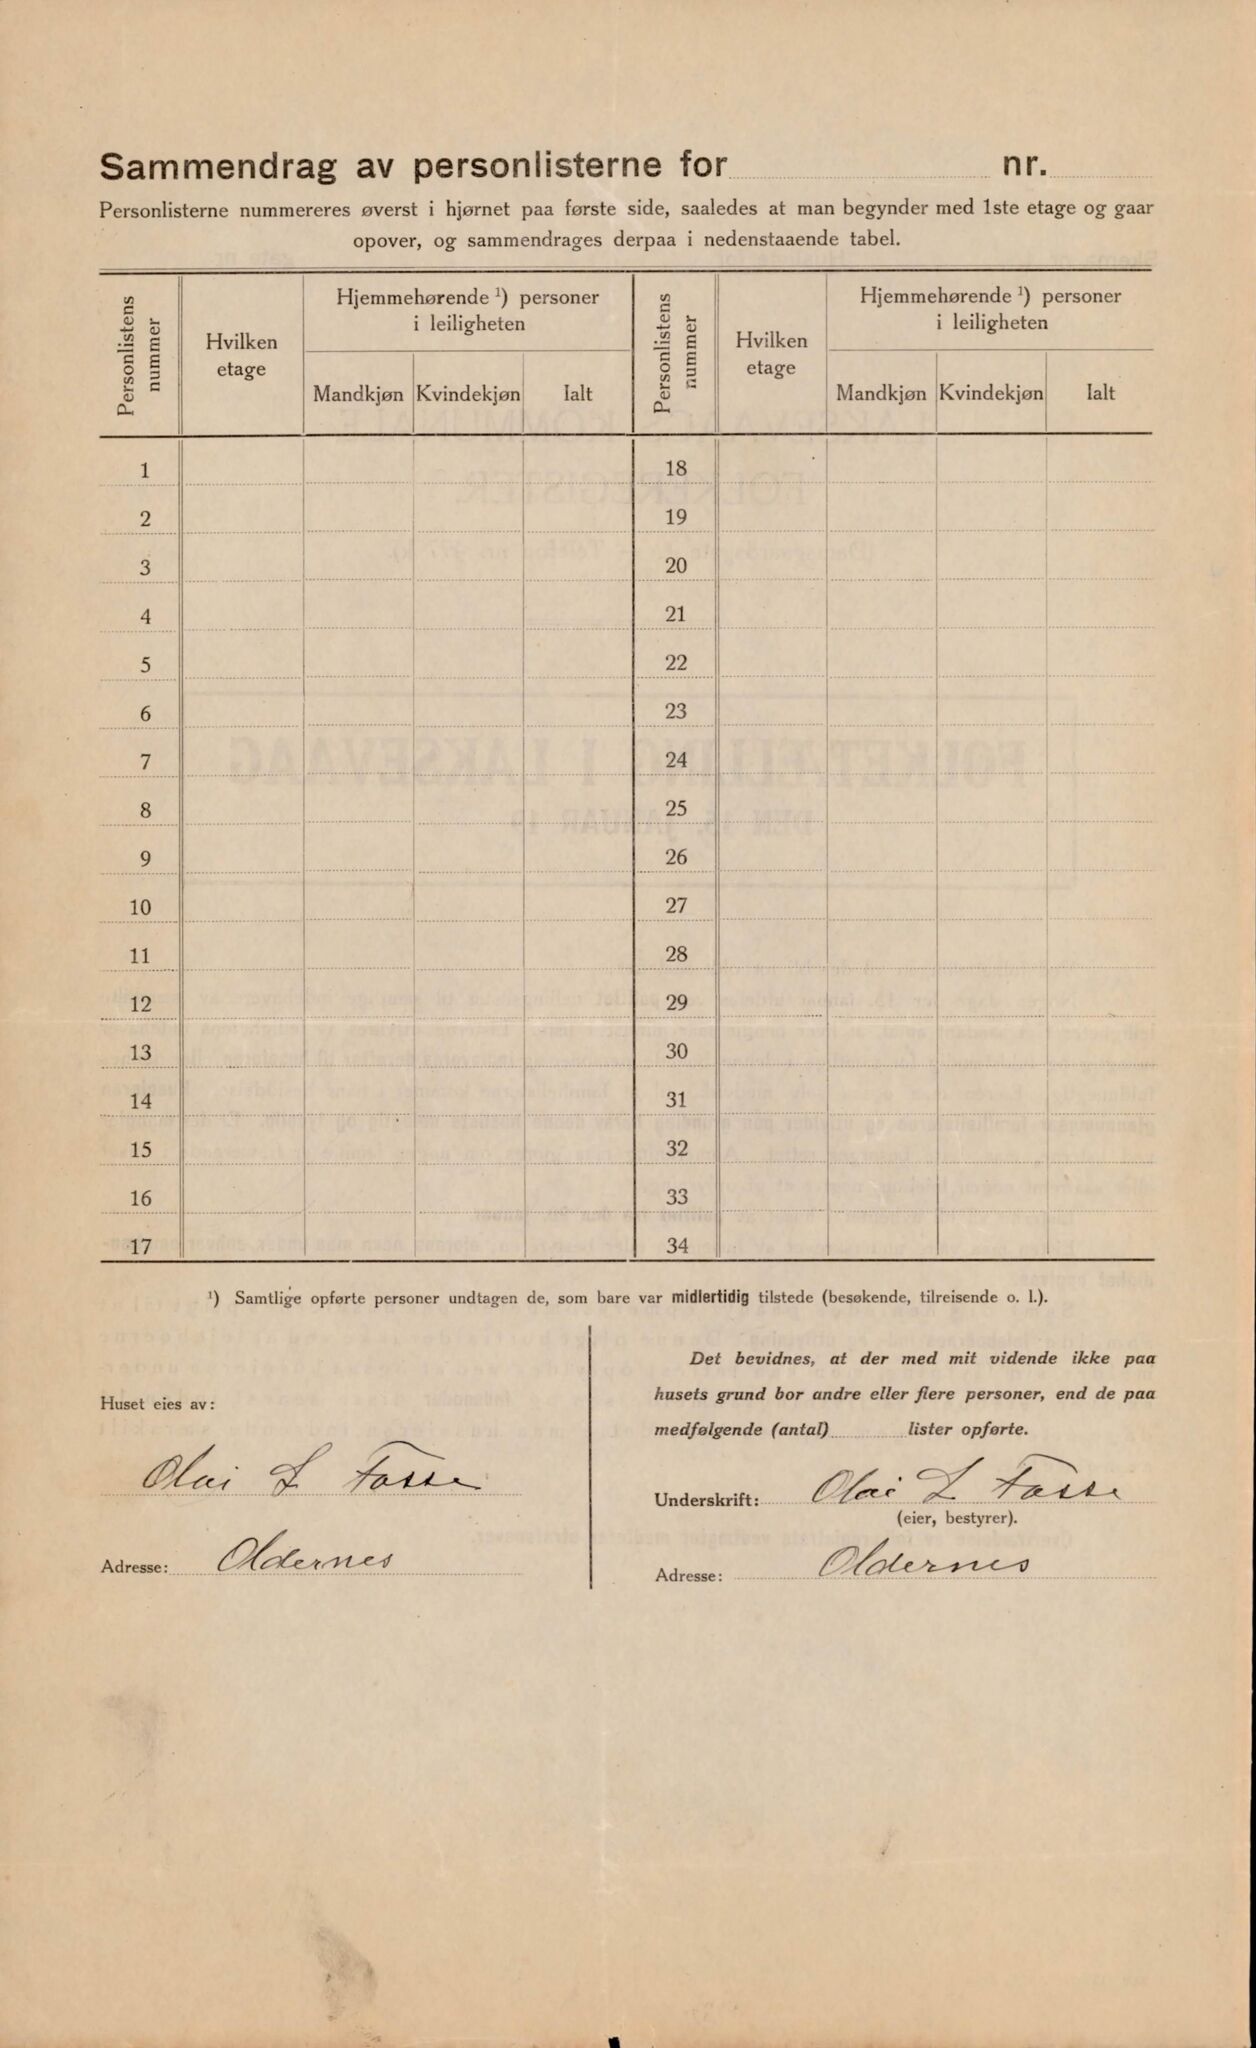 Sammendrag av personlisterne for nr.
Personlisterne nummereres øverst i hjørnet paa første side, saaledes at man begynder med 1ste etage og gaar
opover, og sammendrages derpaa i nedenstaaende tabel.
Personlistens nummer Hvilken etage Hjemmehørende ¹) personer i leiligheten Personlistens nummer Hvilken etage Hjemmehørende ¹) personer i leiligheten
Mandkjøn Kvindekjøn Ialt Mandkjøn Kvindekjøn Ialt
1 18
2 19
3 20
4 21
5 22
6 23
7 24
8 25
9 26
10 27
11 28
12 29
13 30
14 31
15 32
16 33
17 34
¹) Samtlige opførte personer undtagen de, som bare var midlertidig tilstede (besøkende, tilreisende o. l.).
Huset eies av:
Olai L Fosse
Adresse: Oldernes
Det bevidnes, at der med mit vidende ikke paa
husets grund bor andre eller flere personer, end de paa
medfølgende (antal) lister opførte.
Underskrift: Olai L Fosse
(eier, bestyrer).
Adresse: Oldernes